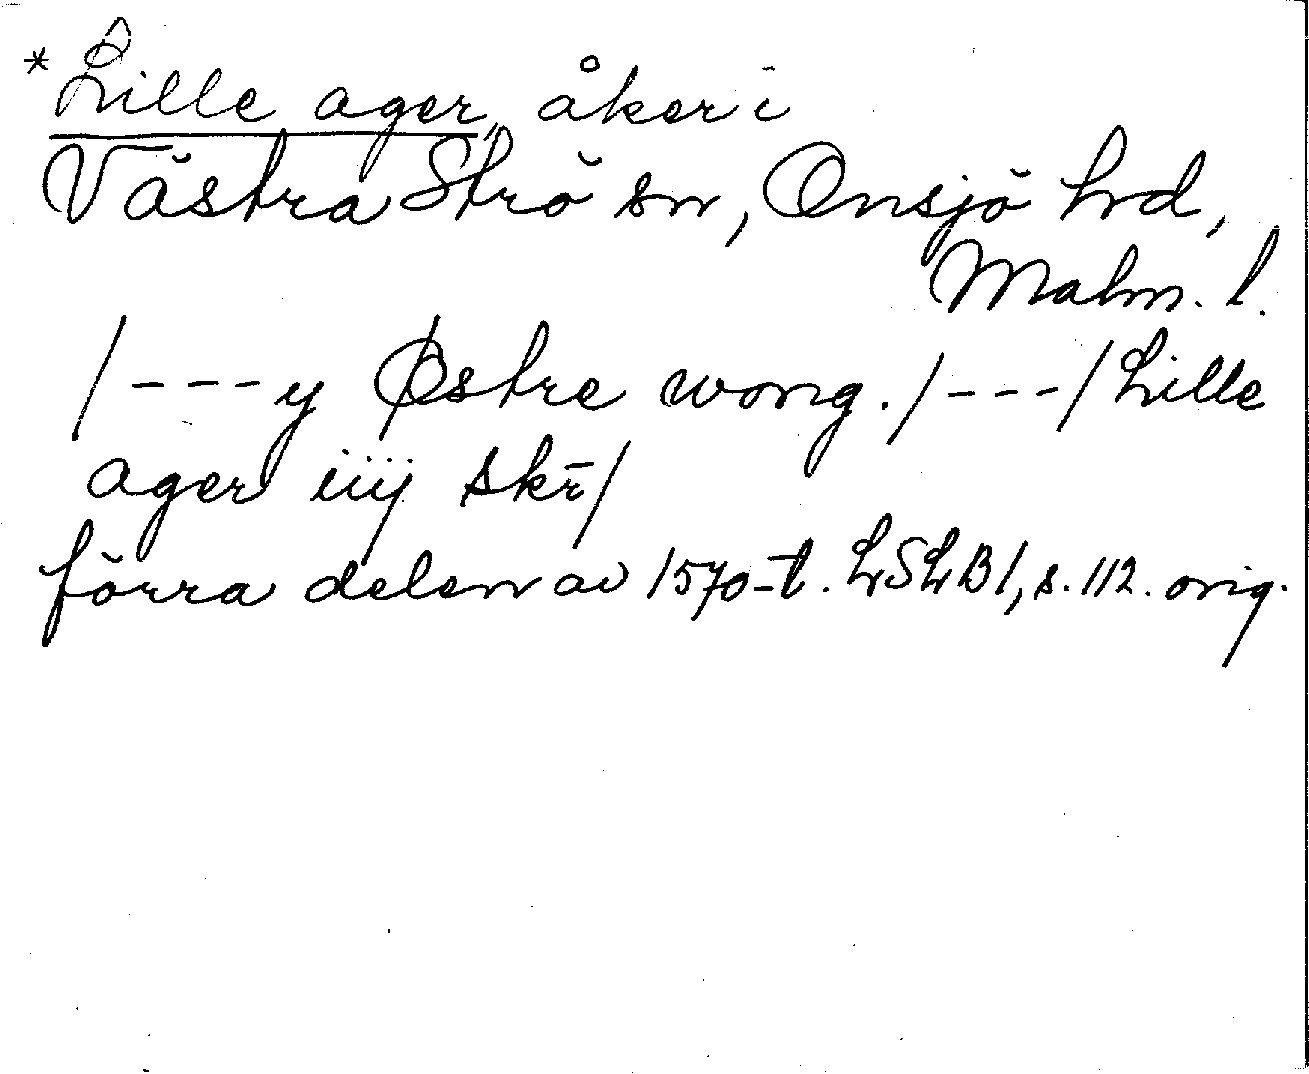 *Lille ager, åker i
Västra Strö sn, Onsjö hrd,
Malm. l.
/---y Østre wong./---/Lille
ager iiij skr̄/
förra delen av 1570-t. LSLB1, s. 112. orig.